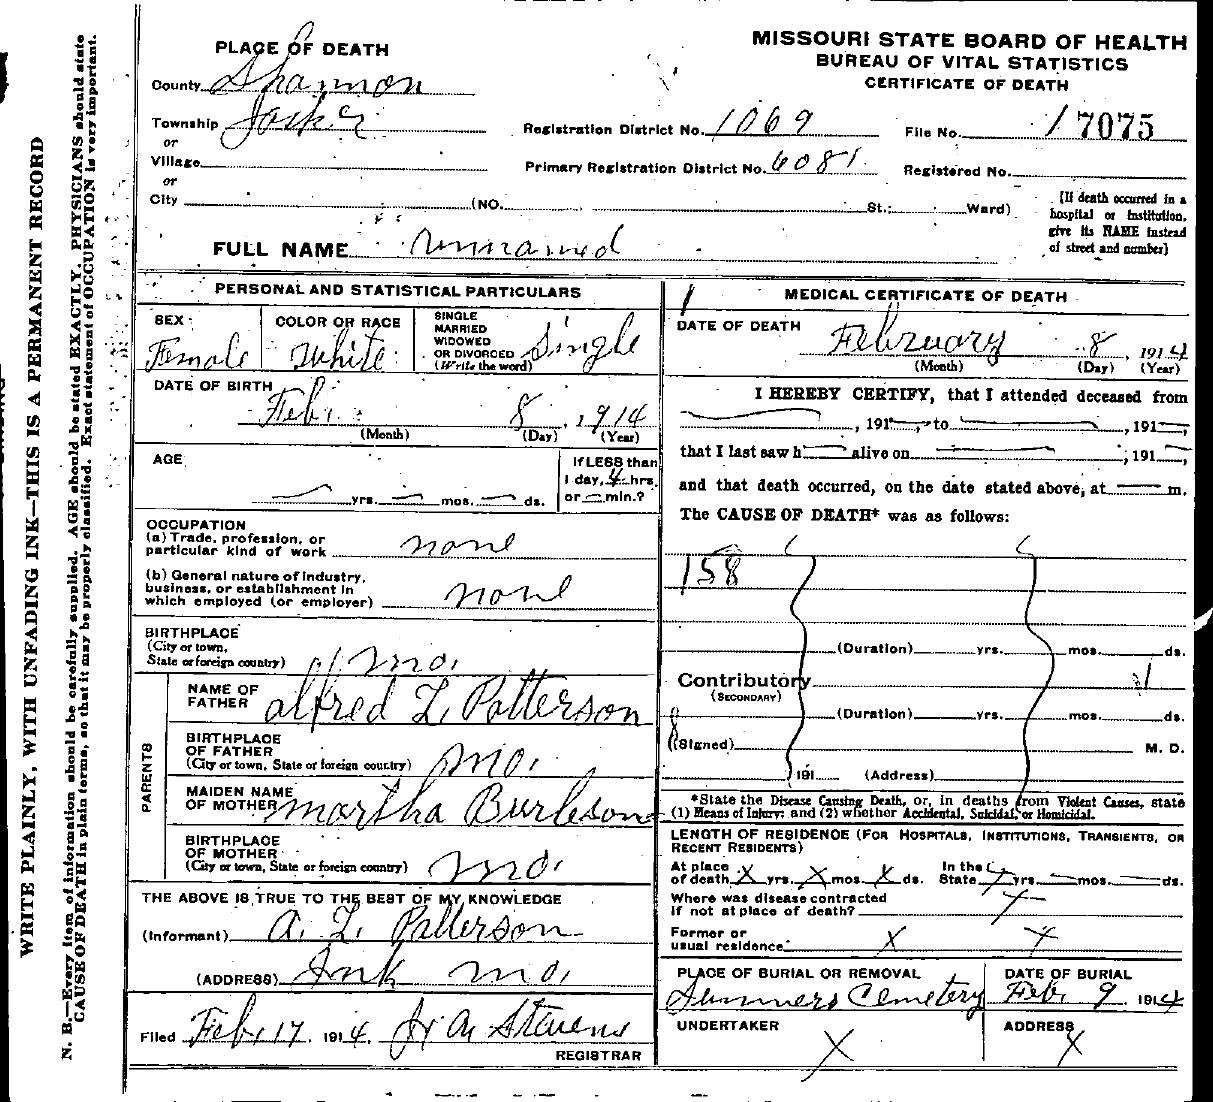 MISSOURI STATE BOARD OF HEALTH
BUREAU OF VITAL STATISTICS
CERTIFICATE OF DEATH
PLACE OF DEATH
County Shannon
Township
or
Village
or
City (NO. St.; Ward)
Registration District No. 1069 File No. 17075
Primary Registration District No. 6081 Registered No.
(If death occurred in a
hospital or institution,
give its NAME instead
of street and number)
FULL NAME Unnamed
PERSONAL AND STATISTICAL PARTICULARS
SEX Female
COLOR OR RACE White
SINGLE
MARRIED
WIDOWED
OR DIVORCED
(Write the word) Single
DATE OF BIRTH Feb. 8, 1914
(Month) (Day) (Year)
AGE
yrs. mos. ds.
If LESS than
1 day, 4 hrs.
or min.?
OCCUPATION
(a) Trade, profession, or
particular kind of work none
(b) General nature of industry,
business, or establishment in
which employed (or employer) none
BIRTHPLACE
(City or town,
State or foreign country) Mo.
PARENTS
NAME OF
FATHER Alfred L. Patterson
BIRTHPLACE
OF FATHER
(City or town, State or foreign country) Mo.
MAIDEN NAME
OF MOTHER Martha Burleson
BIRTHPLACE
OF MOTHER
(City or town, State or foreign country) Mo.
THE ABOVE IS TRUE TO THE BEST OF MY KNOWLEDGE
(Informant) A. L. Patterson
(ADDRESS) Ink Mo.
Filed Feb. 17, 1914, Stevens
REGISTRAR
MEDICAL CERTIFICATE OF DEATH
DATE OF DEATH February 8, 1914
(Month) (Day) (Year)
I HEREBY CERTIFY, that I attended deceased from
, 191 , to , 191 ,
that I last saw h alive on , 191 ,
and that death occurred, on the date stated above, at m.
The CAUSE OF DEATH* was as follows:
158
(Duration) yrs. mos. ds.
Contributory
(SECONDARY)
(Duration) yrs. mos. ds.
(Signed) M. D.
191 (Address)
*State the Disease Causing Death, or, in deaths from Violent Causes, state
(1) Means of Injury; and (2) whether Accidental, Suicidal, or Homicidal.
LENGTH OF RESIDENCE (FOR HOSPITALS, INSTITUTIONS, TRANSIENTS, OR
RECENT RESIDENTS)
At place In the
of death X yrs. X mos. X ds. State yrs. mos. ds.
Where was disease contracted
if not at place of death? X
Former or
usual residence X X
PLACE OF BURIAL OR REMOVAL
Summers Cemetery
DATE OF BURIAL
Feb. 9 1914
UNDERTAKER
X
ADDRESS
X
WRITE PLAINLY, WITH UNFADING INK—THIS IS A PERMANENT RECORD
N. B.—Every item of information should be carefully supplied. AGE should be stated EXACTLY. PHYSICIANS should state
CAUSE OF DEATH in plain terms, so that it may be properly classified. Exact statement of OCCUPATION is very important.